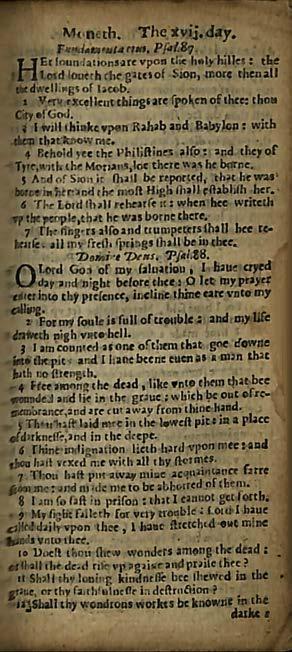 Moneth. The xvij. day.
Fundamenta eius. Psal.87.
HEr foundations are vpon the holy hilles: the
Lord loueth the gates of Sion, more then all
the dwellings of Iacob.
2 Very excellent things are spoken of thee: thou
City of God.
3 I will thinke vpon Rahab and Babylon: with
them that know me.
4 Behold yee the Philistines also: and they of
Tyre, with the Morians, loe there was he borne.
5 And of Sion it shall be reported, that he was
borne in her: and the most High shall establish her.
6 The Lord shall rehearse it: when hee writeth
vp the people, that he was borne there.
7 The singers also and trumpeters shall hee re-
hearse: all my fresh springs shall be in thee.
Domine Deus. Psal.88.
O Lord God of my saluation, I haue cryed
day and night before thee: O let my prayer
enter into thy presence, incline thine eare vnto my
calling.
2 For my soule is full of trouble: and my life
draweth nigh vnto hell.
3 I am counted as one of them that goe downe
into the pit: and I haue beene euen as a man that
hath no strength.
4 Free among the dead, like vnto them that bee
wounded and lie in the graue: which be out of re-
membrance, and are cut away from thine hand.
5 Thou hast laid mee in the lowest pit: in a place
of darknesse, and in the deepe.
6 Thine indignation lieth hard vpon mee: and
thou hast vexed me with all thy stormes.
7 Thou hast put away mine acquaintance farre
from me: and made me to be abhorred of them.
8 I am so fast in prison: that I cannot get forth.
9 My sight faileth for very trouble: Lord I haue
called daily vpon thee, I haue stretched out mine
hands vnto thee.
10 Doest thou shew wonders among the dead:
or shall the dead rise vp againe and praise thee?
11 Shall thy louing kindnesse bee shewed in the
graue, or thy faithfulnesse in destruction?
12 Shall thy wondrous workes be knowne in the
darke: